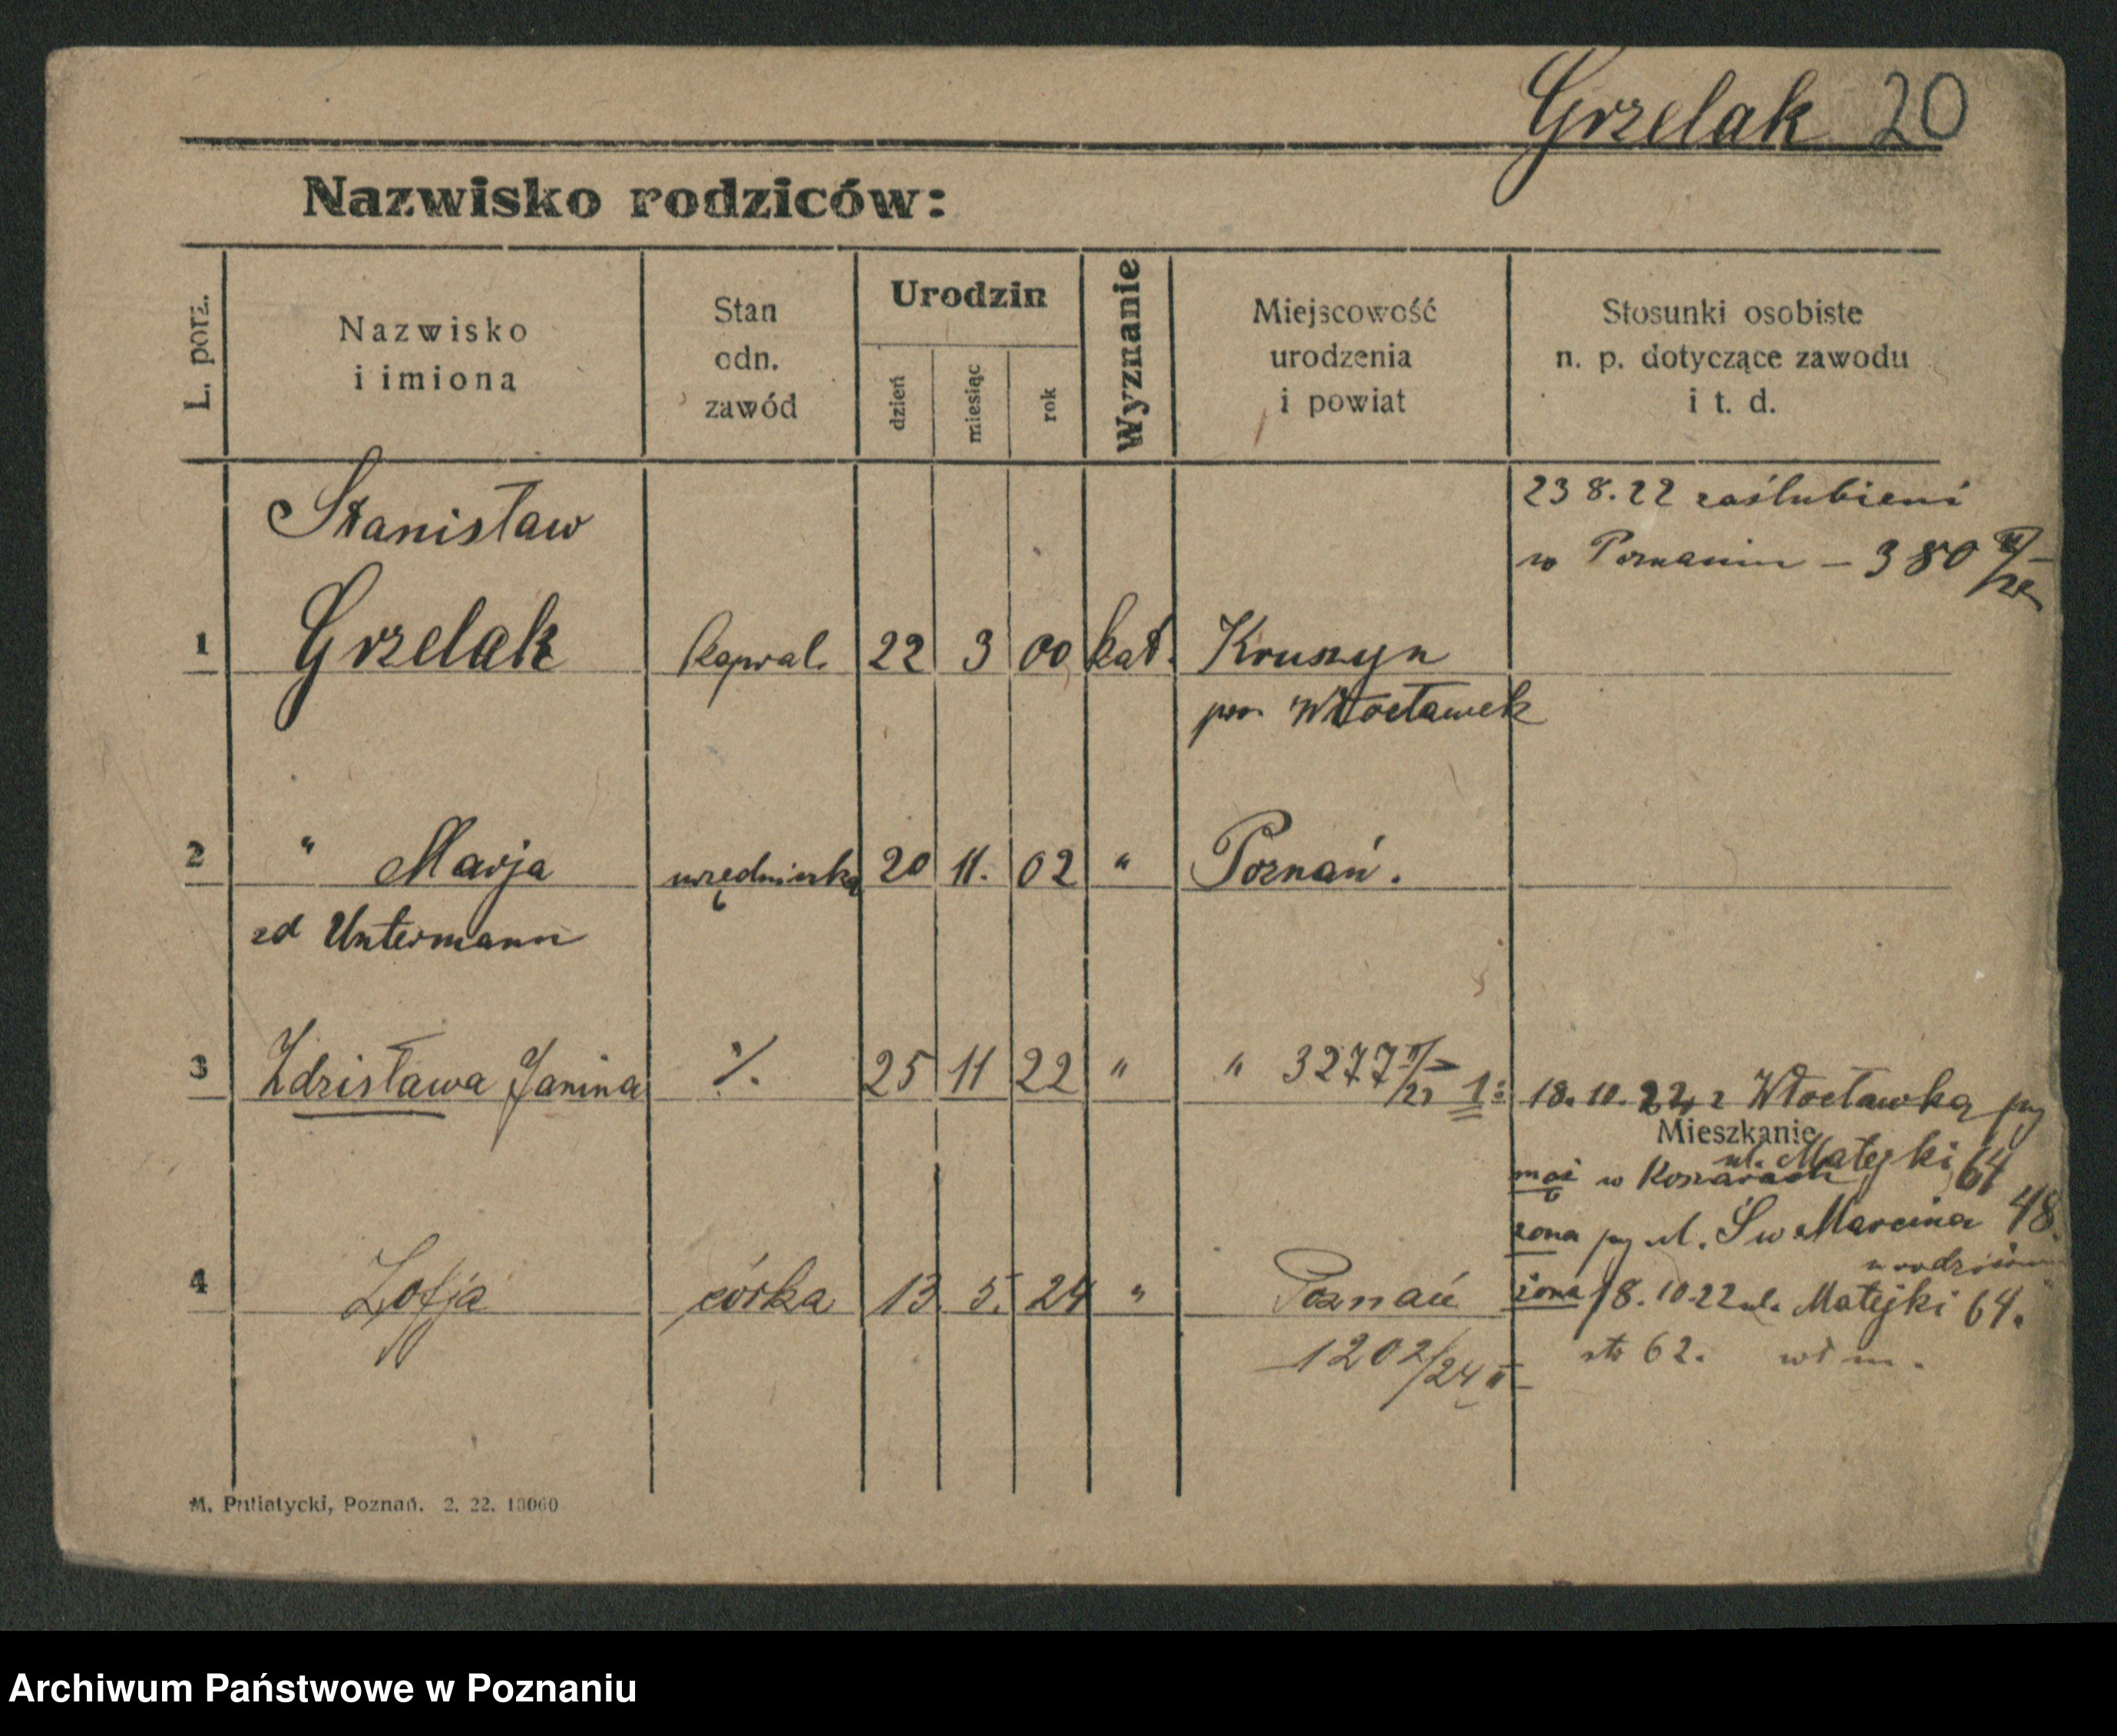 Grzelak 20
Nazwisko rodziców:
L. porz.
Nazwisko
i imiona
Stan
odn.
zawód
Urodzin
dzień
miesiąc
rok
Wyznanie
Miejscowość
urodzenia
i powiat
Stosunki osobiste
n. p. dotyczące zawodu
i t. d.
23 8. 22 zaślubieni
w Poznaniu – 380
Stanisław
1 Grzelak kapral. 22 3 00 kat. Kruszyn
pow. Włocławek
2 " Marja urzędniczka 20 11. 02 " Poznań.
zd Untermann
3 Zdzisława Janina ./. 25 11 22 " " 3277 II/22 1:
18. 10. 22 z Włocławka
Mieszkanie
ul. Matejki 64
mąż w Koszarach
żona ul. Św Marcina 48.
4 Zofja córka 13. 5. 24 " Poznań
żona 18. 10. 22 ul. Matejki 64.
1202/24 II
62.
M. Putiatycki, Poznań. 2. 22. 10000
Archiwum Państwowe w Poznaniu